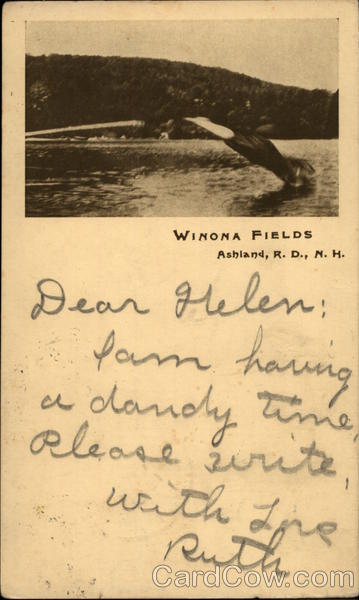 WINONA FIELDS
Ashland, R. D., N. H.
Dear Helen:
I am having
a dandy time,
Please write,
With Love
Ruth
CardCow.com